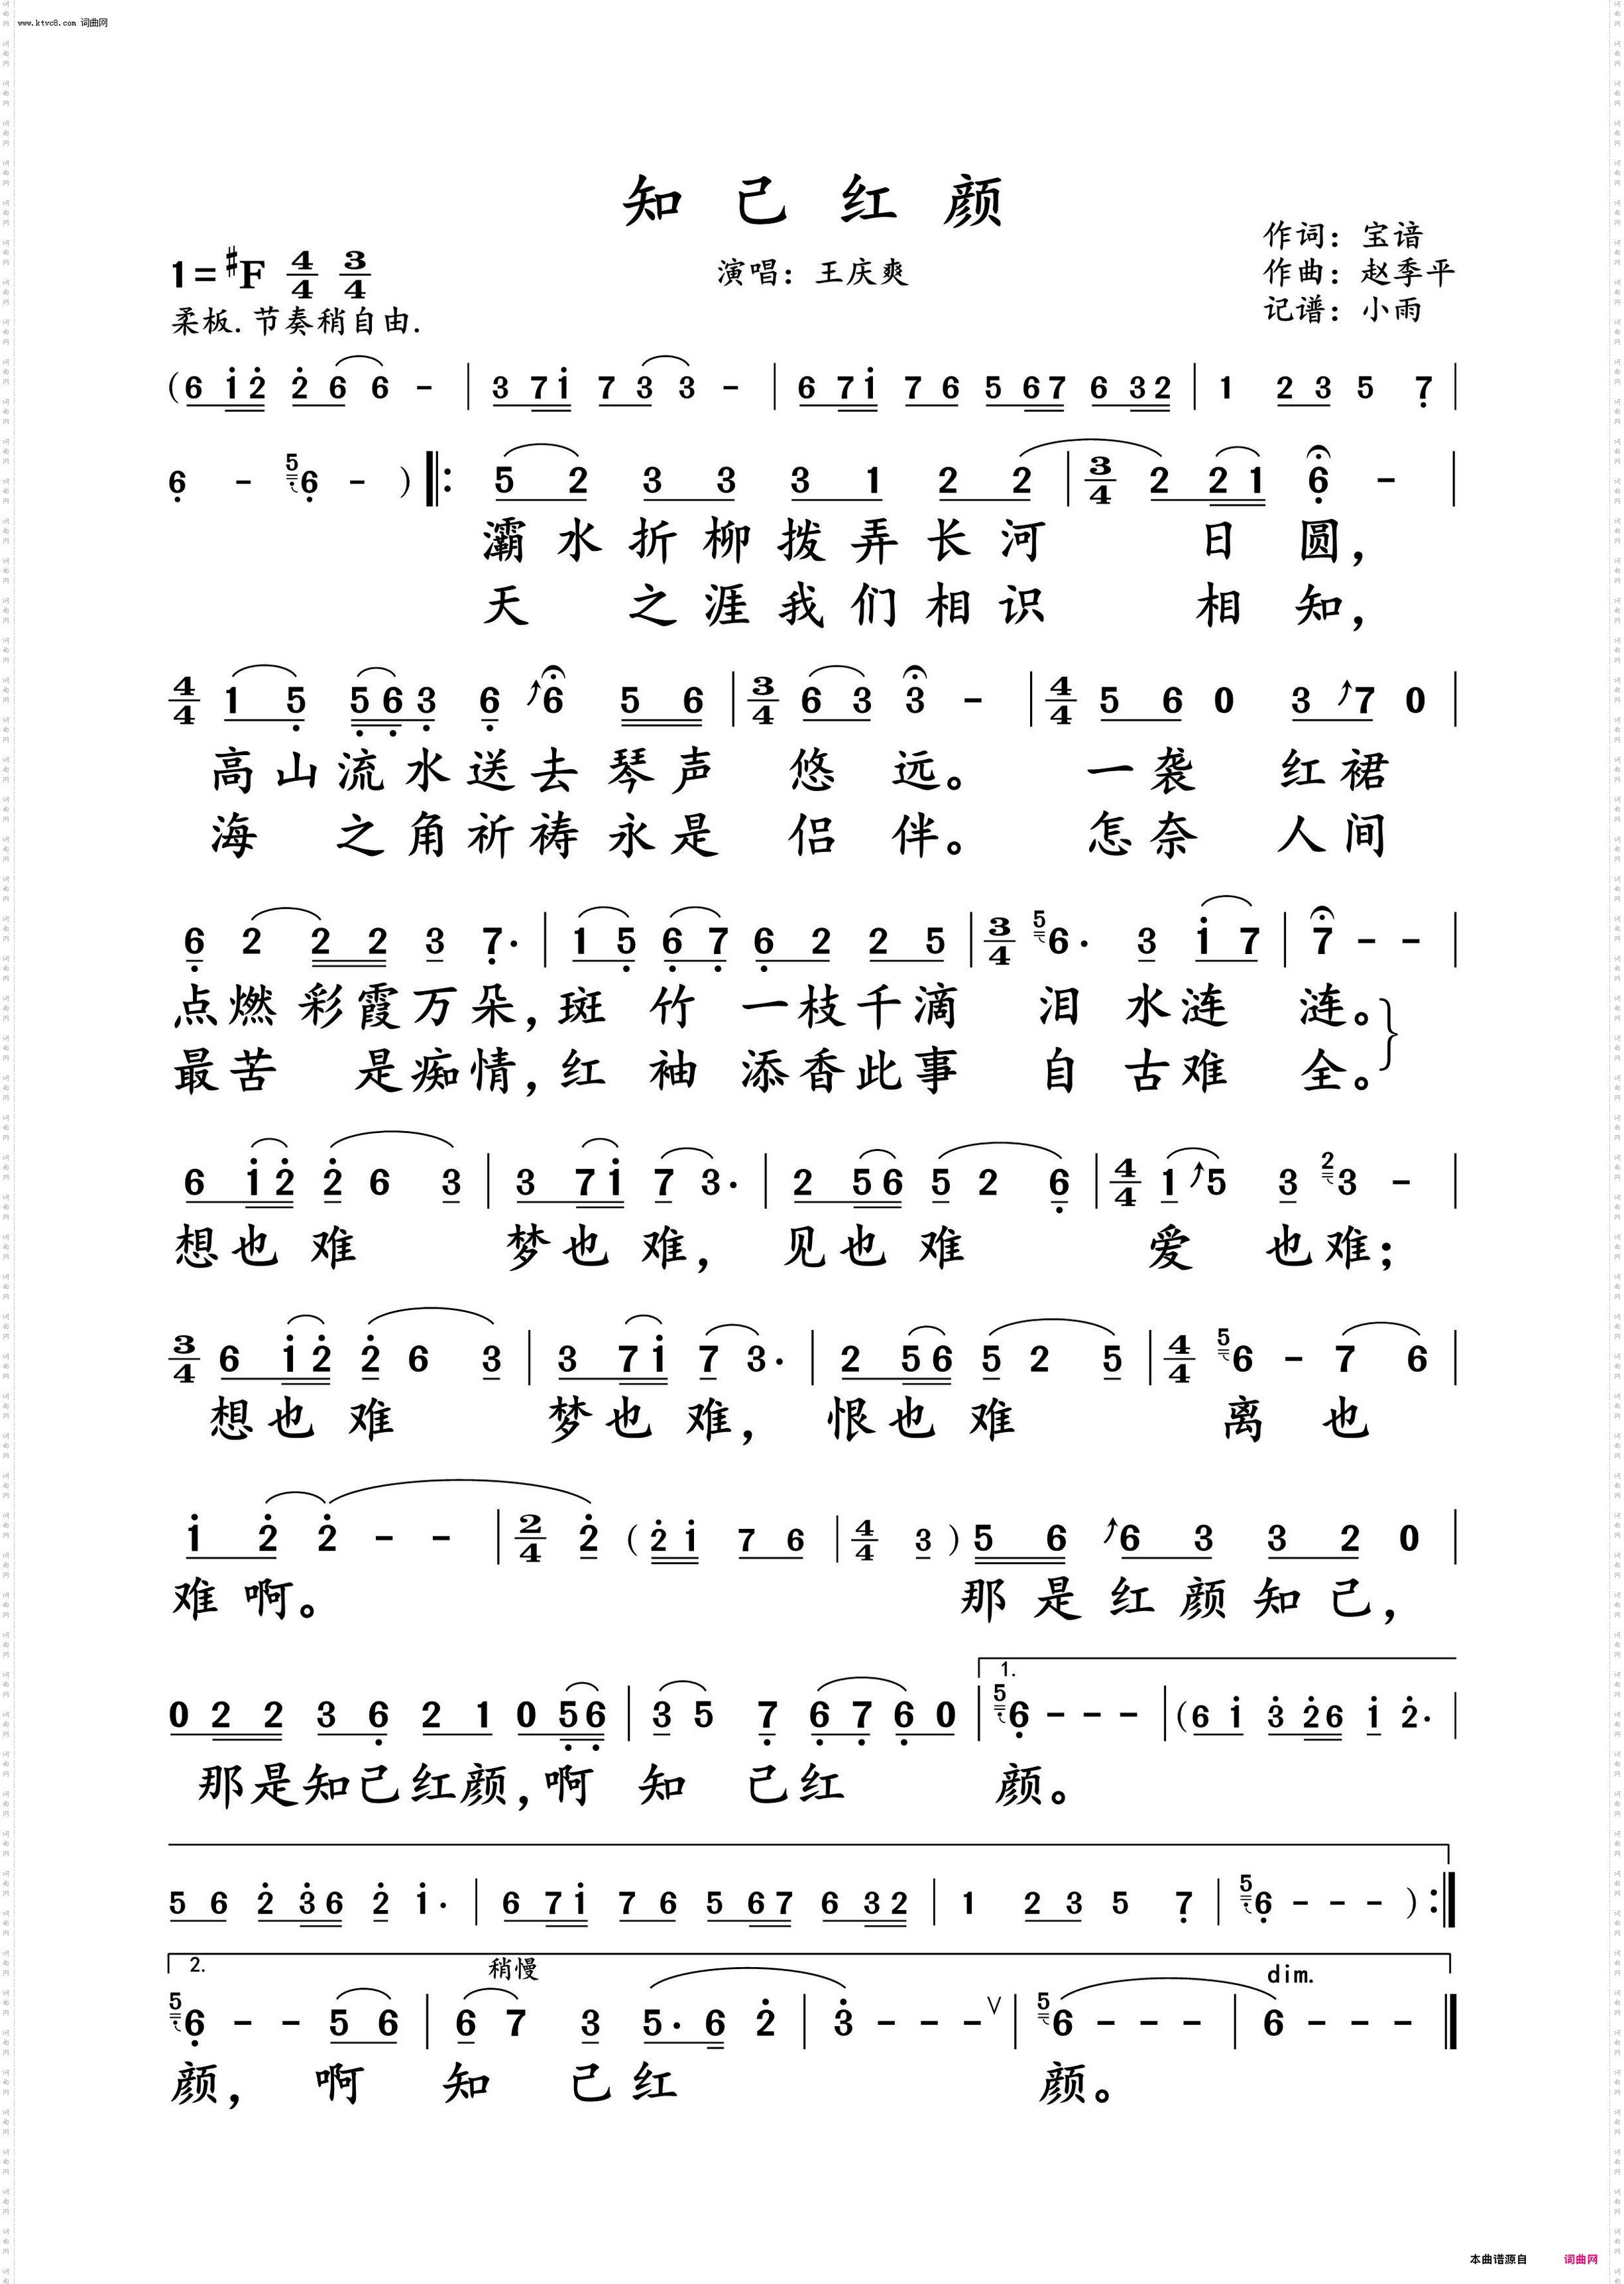 www.ktvc8.com 词曲网
知己红颜
作词：宝谙
1=♯F 4/4 3/4
演唱：王庆爽
作曲：赵季平
柔板.节奏稍自由.
记谱：小雨
(6 1̇2̇ 2̇ 6 6 - | 3 71̇ 7 3 3 - | 6 71̇ 7 6 5 67 6 32 | 1 2 3 5 7̣ |
6̣ - 5̣6̣ - ) ‖: 5 2 3 3 3 1 2 2 | 3/4 2 2 1 6̣ - |
灞水折柳拨弄长河 日圆，
天 之涯我们相识 相知，
4/4 1 5̣ 5̣ 6̣ 3̣ 6̣ 6 5 6 | 3/4 6 3 3 - | 4/4 5 6 0 3 7 0 |
高山流水送去琴声 悠远。 一袭 红裙
海 之角祈祷永是 侣伴。 怎奈 人间
6̣ 2 2 2 3 7̣. | 1 5̣ 6̣ 7̣ 6̣ 2 2 5 | 3/4 56. 3 1̇ 7 | 7 - - |
点燃彩霞万朵，斑竹 一枝千滴 泪水涟涟。
最苦 是痴情，红袖 添香此事 自古难全。
6 1̇2̇ 2̇ 6 3 | 3 71̇ 7 3. | 2 56 5 2 6̣ | 4/4 1 5 3 23 - |
想也难 梦也难， 见也难 爱 也难；
3/4 6 1̇2̇ 2̇ 6 3 | 3 71̇ 7 3. | 2 56 5 2 5 | 4/4 56 - 7 6 |
想也难 梦也难， 恨也难 离 也
1̇ 2̇ 2̇ - - | 2/4 2̇ (2̇1̇ 7 6 | 4/4 3 ) 5 6 6 3 3 2 0 |
难啊。 那是红颜知己，
1.
0 2 2 3 6̣ 2 1 0 5̣6̣ | 3 5 7̣ 6̣ 7̣ 6̣ 0 | 5̣6̣ - - - | (6 1̇ 3̇ 2̇6 1̇ 2̇. |
那是知己红颜，啊 知 己红 颜。
5 6 2̇ 3̇6 2̇ 1̇. | 6 71̇ 7 6 5 67 6 32 | 1 2 3 5 7̣ | 5̣6̣ - - - ) :‖
2. 稍慢 dim.
5̣6̣ - - 5 6 | 6 7 3 5. 6 2̇ | 3̇ - - - ∨ | 56 - - - | 6 - - - ‖
颜， 啊 知 己红 颜。
本曲谱源自 词曲网